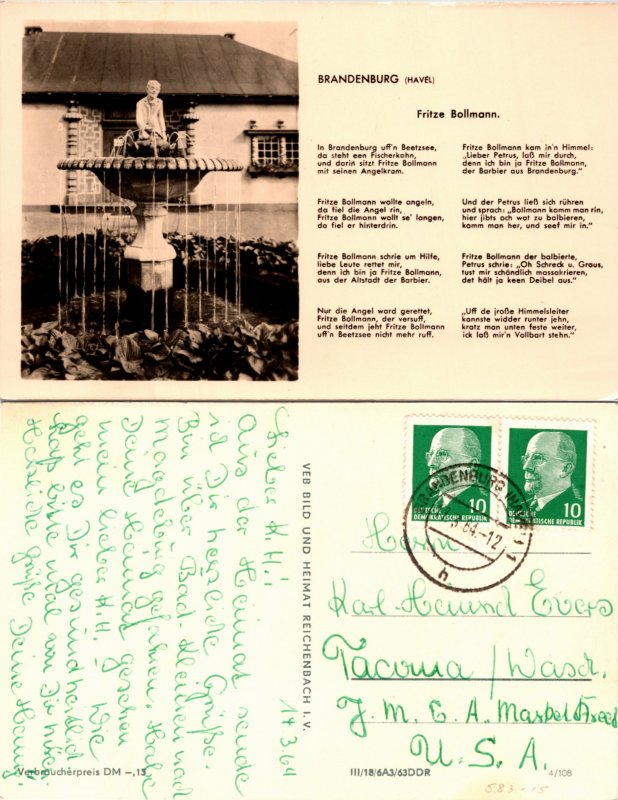 BRANDENBURG (HAVEL)
Fritze Bollmann.
In Brandenburg uff'n Beetzsee,
da steht een Fischerkahn,
und darin sitzt Fritze Bollmann
mit seinen Angelkram.
Fritze Bollmann wollte angeln,
da fiel die Angel rin,
Fritze Bollmann wollt se' langen,
da fiel er hinterdrin.
Fritze Bollmann schrie um Hilfe,
liebe Leute rettet mir,
denn ich bin ja Fritze Bollmann,
aus der Altstadt der Barbier.
Nur die Angel ward gerettet,
Fritze Bollmann, der versuff,
und seitdem jeht Fritze Bollmann
uff'n Beetzsee nicht mehr ruff.
Fritze Bollmann kam in'n Himmel:
„Lieber Petrus, laß mir durch,
denn ich bin ja Fritze Bollmann,
der Barbier aus Brandenburg."
Und der Petrus ließ sich rühren
und sprach: „Bollmann komm man rin,
hier jibts och wat zu balbieren,
komm man her, und seef mir in."
Fritze Bollmann der balbierte,
Petrus schrie: „Oh Schreck u. Graus,
tust mir schändlich massakrieren,
det hält ja keen Deibel aus."
„Uff de jroße Himmelsleiter
kannste widder runter jehn,
kratz man unten feste weiter,
ick laß mir'n Vollbart stehn."
14 3.64
Lieber K. H.!
Aus der Heimat sende
ich Dir herzliche Grüße.
Bin über Bad Kleinen nach
Magdeburg gefahren. Habe
Deine Heimat gesehen
mein lieber K. H. Wie
geht es Dir gesundheitlich
Laß bitte mal von Dir hören
Herzliche Grüße Deine
VEB BILD UND HEIMAT REICHENBACH I. V.
Verbraucherpreis DM –,15
10
DEUTSCHE
DEMOKRATISCHE REPUBLIK
10
DEUTSCHE
DEMOKRATISCHE REPUBLIK
BRANDENBURG
64.-12
1
h
Herrn
Karl-Heinz Evers
Tacoma / Wasch.
U. S. A.
III/18/6A3/63DDR
4/108
583-15